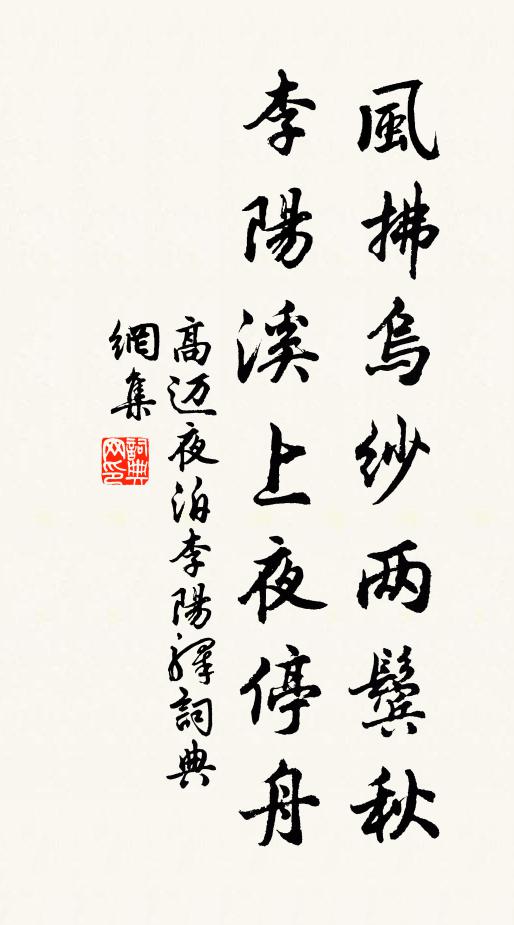 風拂烏紗两鬓秋
李陽溪上夜停舟
高迈夜泊李陽驛詞典
網集
詞典网印